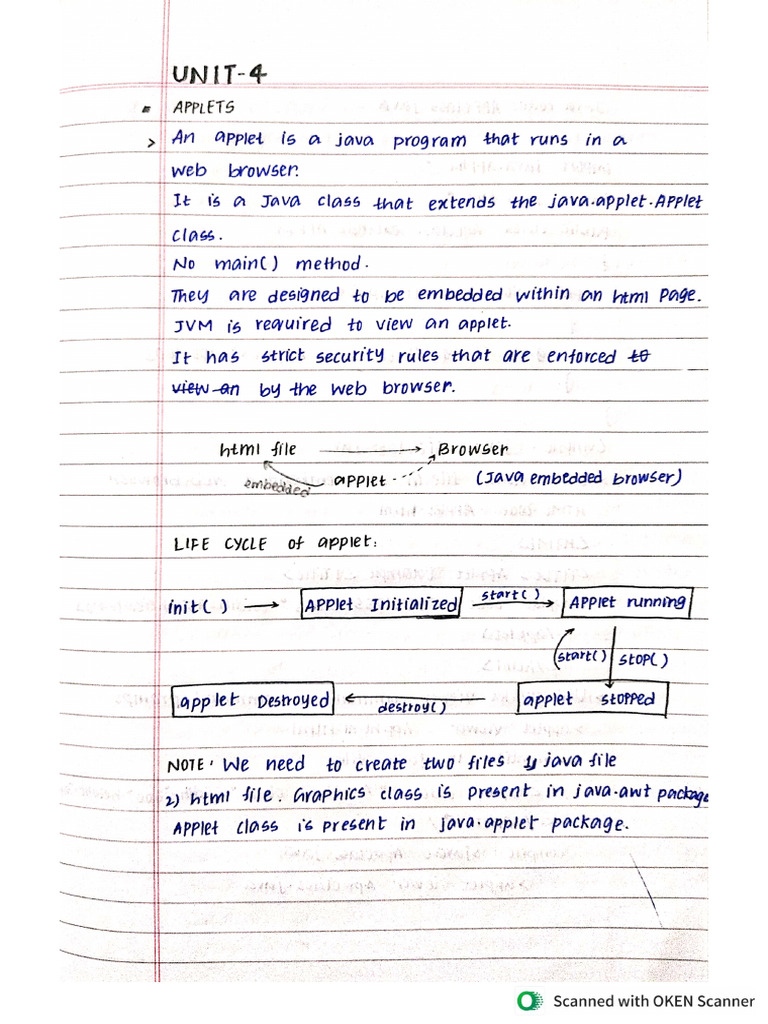 UNIT-4
APPLETS
> An applet is a java program that runs in a
web browser.
It is a Java class that extends the java.applet.Applet
class.
No main() method.
They are designed to be embedded within an html Page.
JVM is required to view an applet.
It has strict security rules that are enforced to
view an by the web browser.
html file → Browser
embedded applet (Java embedded browser)
LIFE CYCLE of applet:
init() → Applet Initialized start() → Applet running
start() STOP()
applet Destroyed ← destroy() applet stopped
NOTE: We need to create two files 1) java file
2) html file. Graphics class is present in java.awt package
Applet class is present in java.applet package.
Scanned with OKEN Scanner